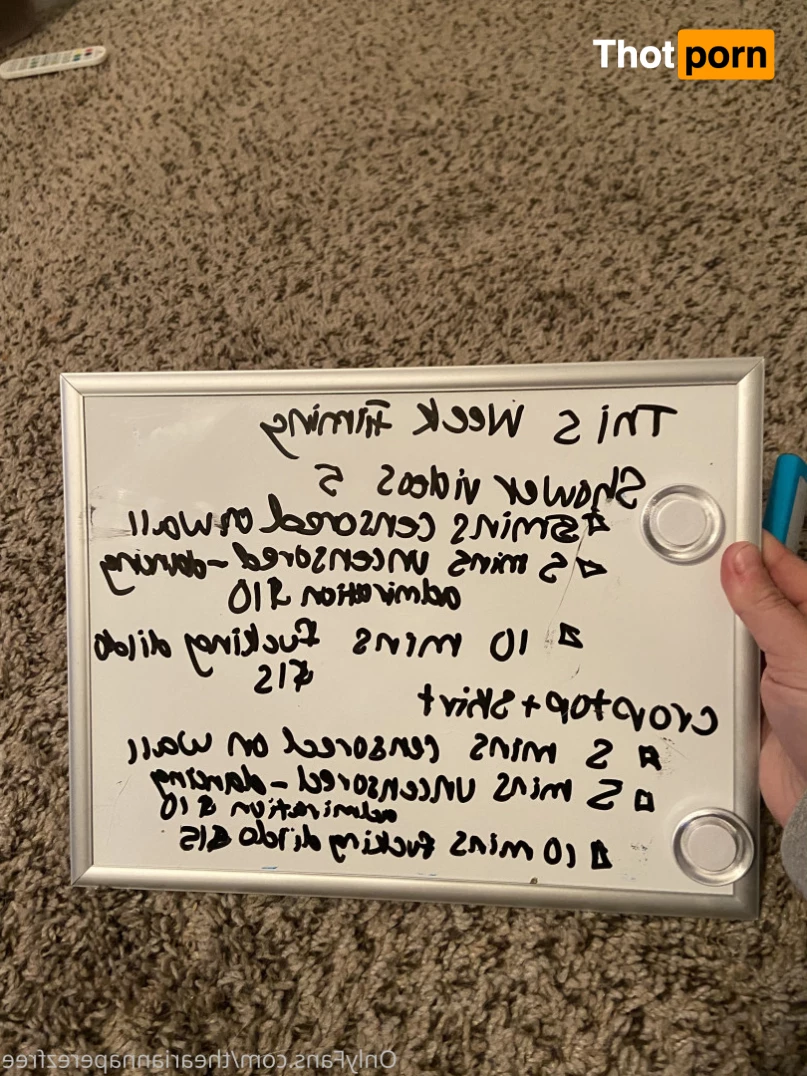 Thot porn
This Week Filming
Shower videos 5
5mins censored on wall
5 mins uncensored-dancing
admiration $10
10 mins fucking dildo
$15
croptop+skirt
5 mins censored on wall
5 mins uncensored-dancing
admiration $10
10 mins fucking dildo $15
OnlyFans.com/theariannaperezfree